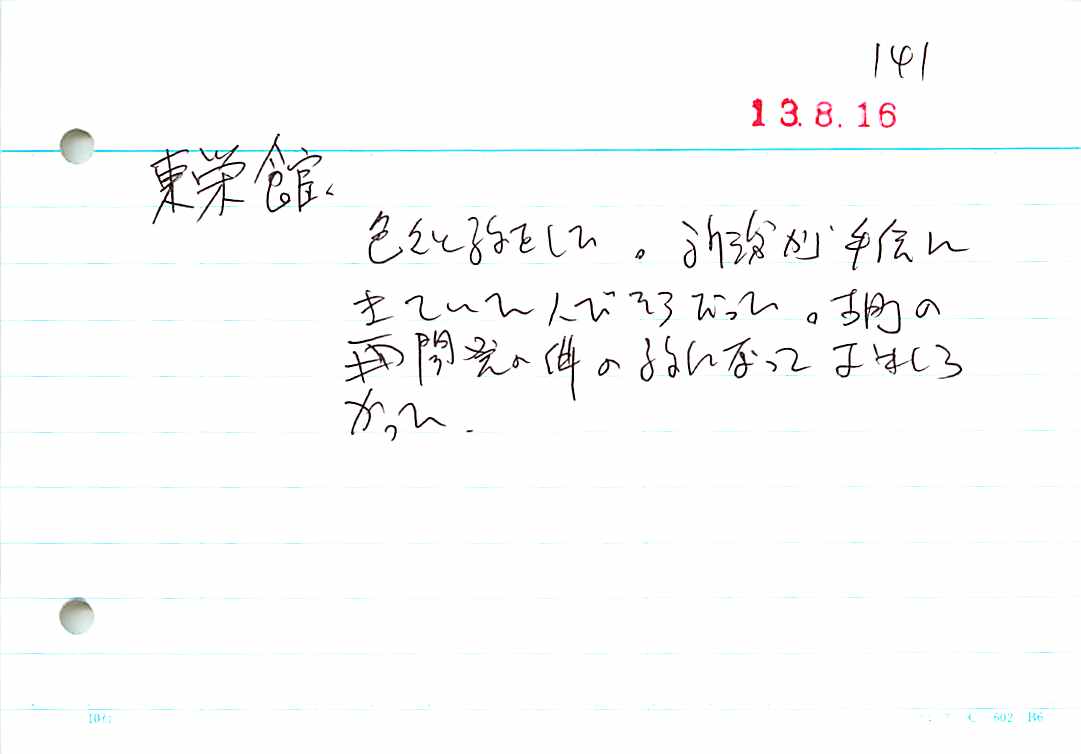 141
13.8.16
東栄館、
色々と話をした。 が手伝に
きていた人でそうだった。 の
再開発の件の話になっておもしろ
かった.
602 B6